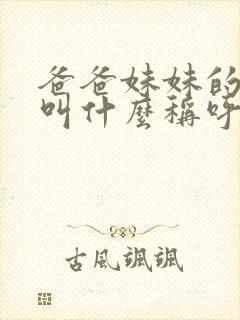 爸爸妹妹的
叫什麼稱呼
古風颯颯